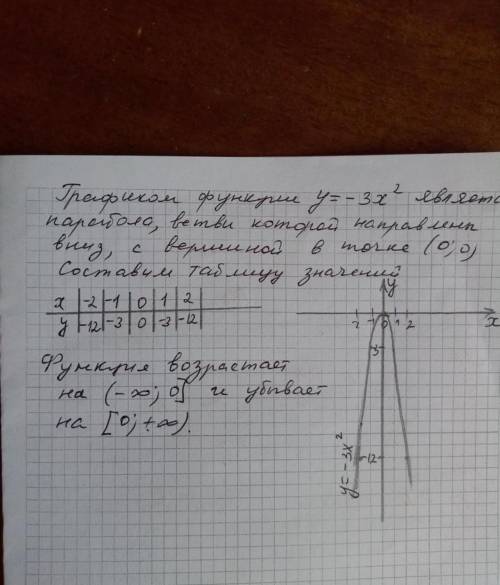 Графиком функции y=-3x² являетс
парабола, ветви которой направлены
вниз, с вершиной в точке (0;0)
Составим таблицу значений
x | -2 | -1 | 0 | 1 | 2
y | -12 | -3 | 0 | -3 | -12
Функция возрастает
на (-∞; 0] и убывает
на [0; +∞).
y
x
-2 -1 0 1 2
-3
-12
y=-3x²